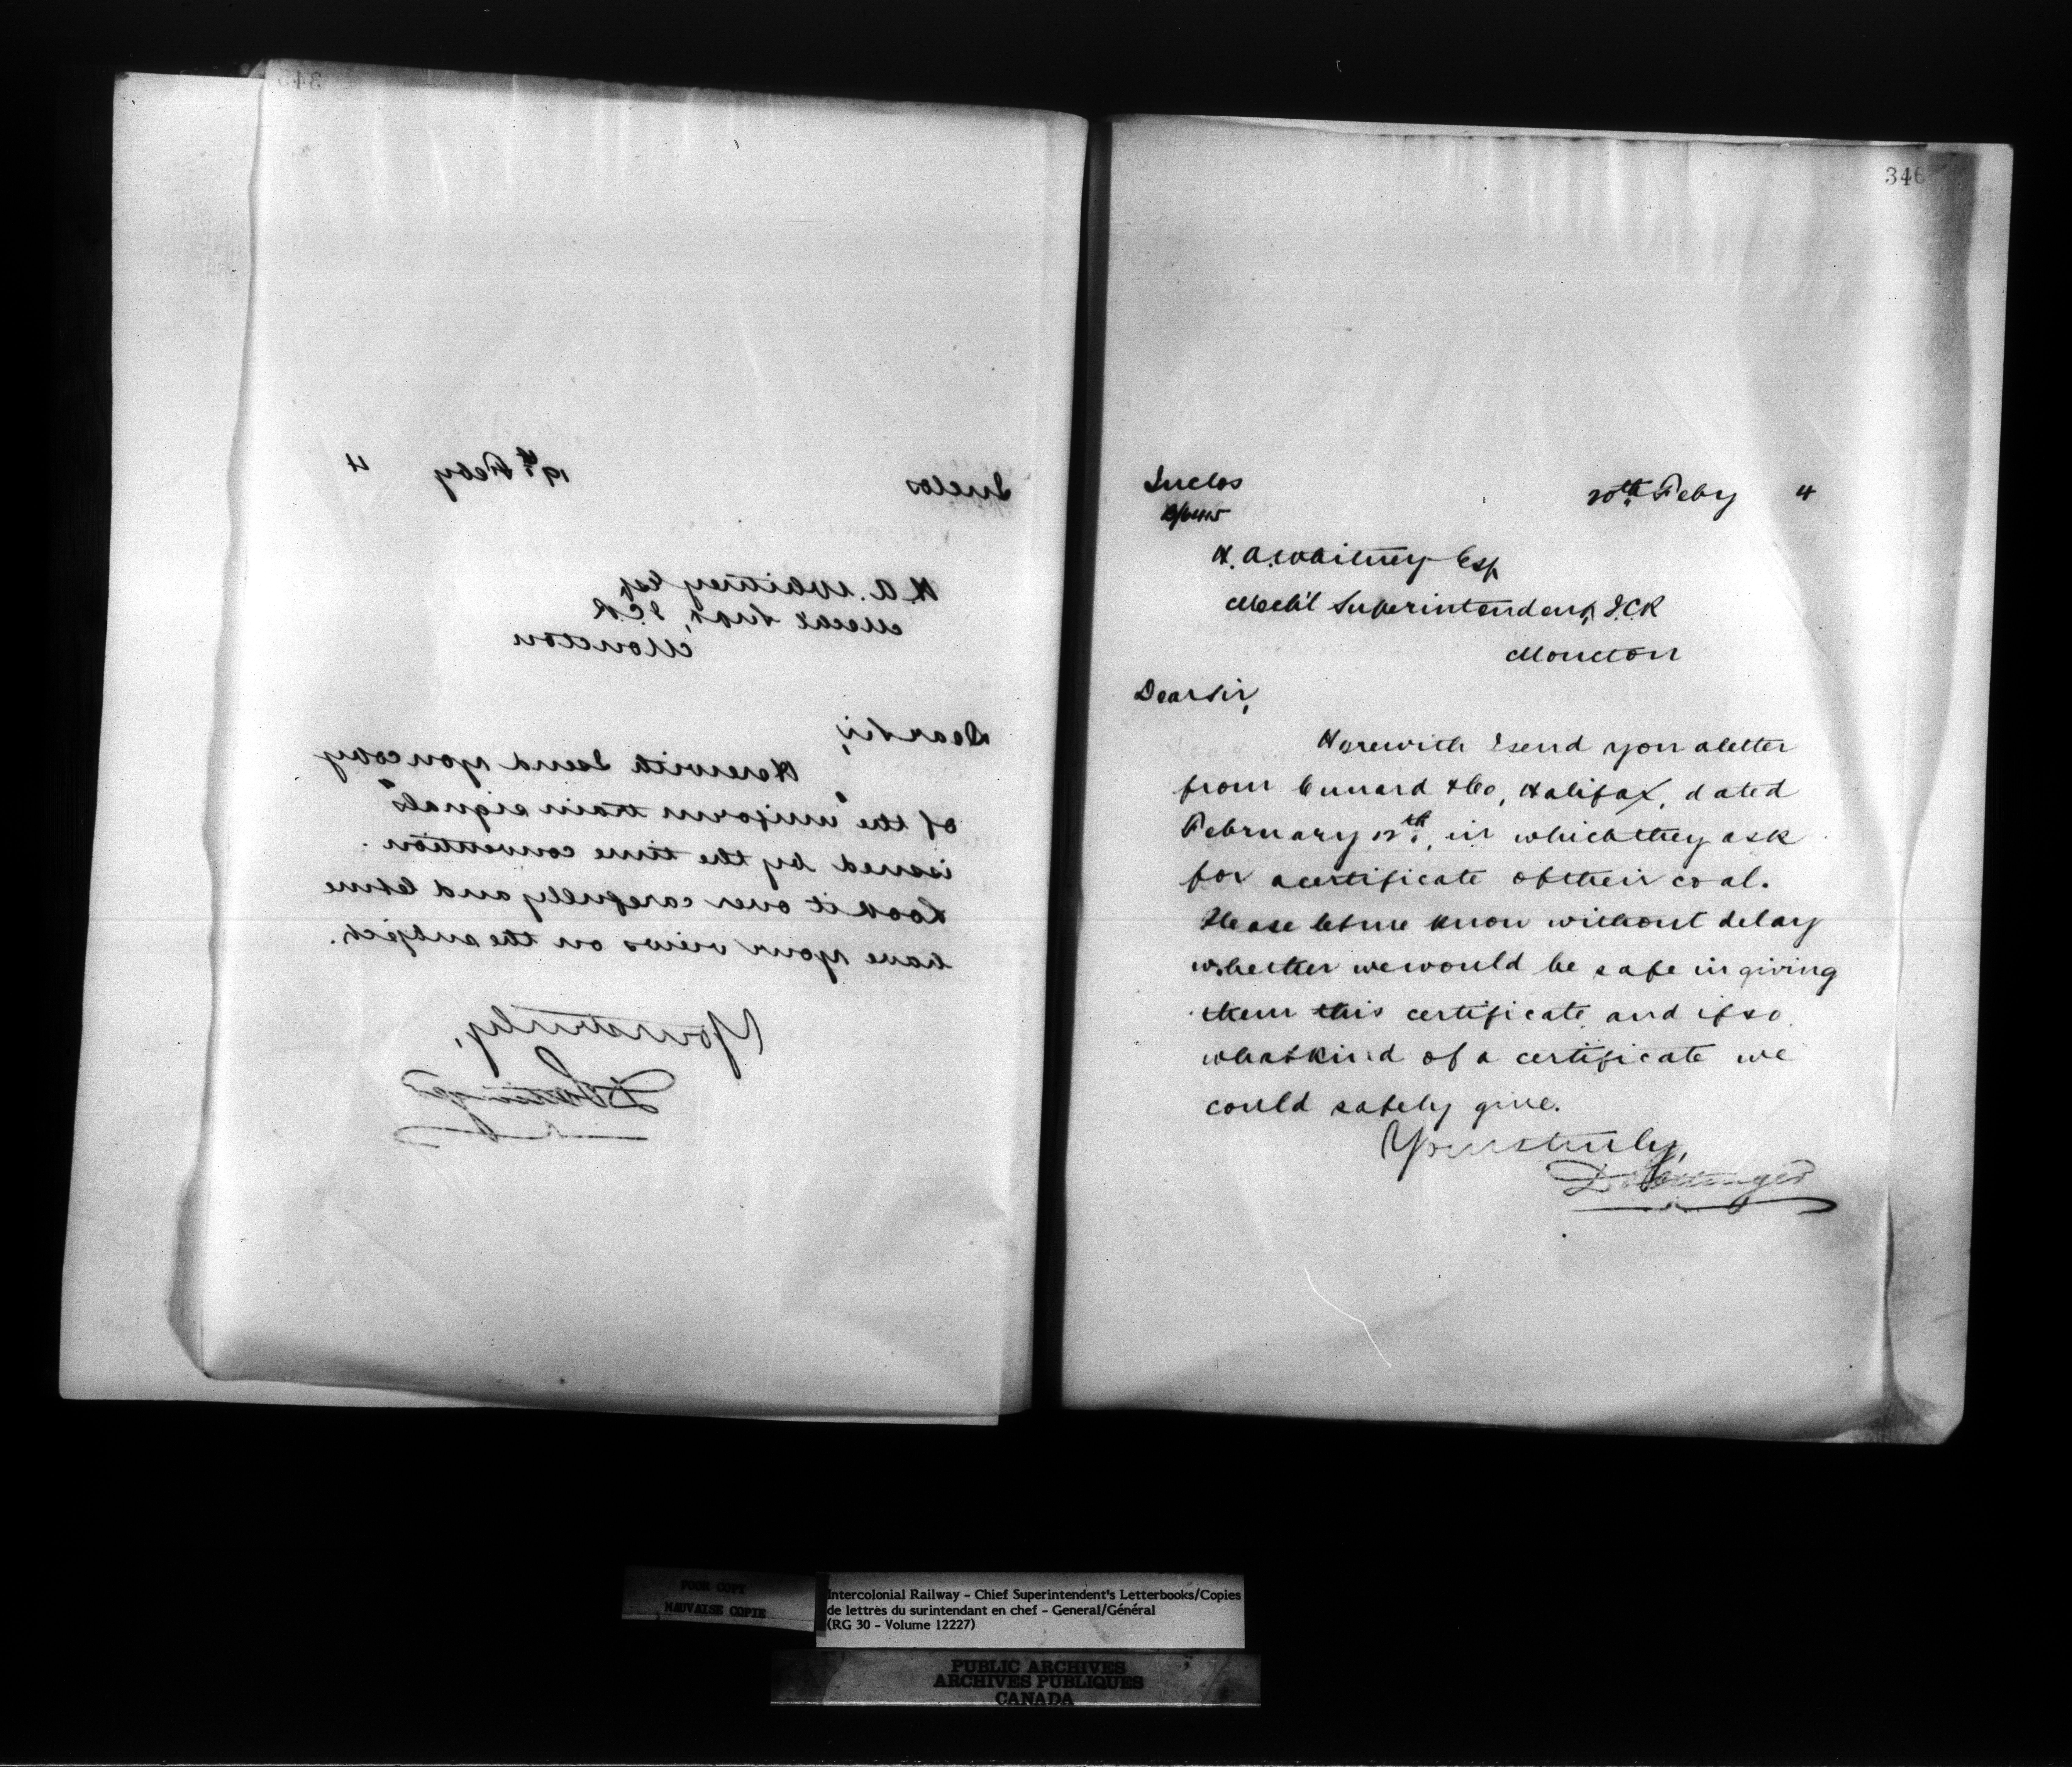 345
Inclos
19th Feby 4
H. A. Whitney Esq
Mechl Supt, I.C.R
Moncton
Dear Sir,
Herewith I send you copy
of the "uniform train signals"
issued by the time convention.
Look it over carefully and let me
have your views on the subject.
Yours truly,
D Pottinger
346
Inclos
20th Feby 4
H. A. Whitney Esq
Mech'l Superintendent, I.C.R
Moncton
Dear Sir,
Herewith I send you a letter
from Cunard & Co, Halifax, dated
February 12th, in which they ask
for a certificate of their coal.
Please let me know without delay
whether we would be safe in giving
them this certificate, and if so
what kind of a certificate we
could safely give.
Yours truly,
D Pottinger
POOR COPY
MAUVAISE COPIE
Intercolonial Railway – Chief Superintendent's Letterbooks/Copies
de lettres du surintendant en chef – General/Général
(RG 30 – Volume 12227)
PUBLIC ARCHIVES
ARCHIVES PUBLIQUES
CANADA